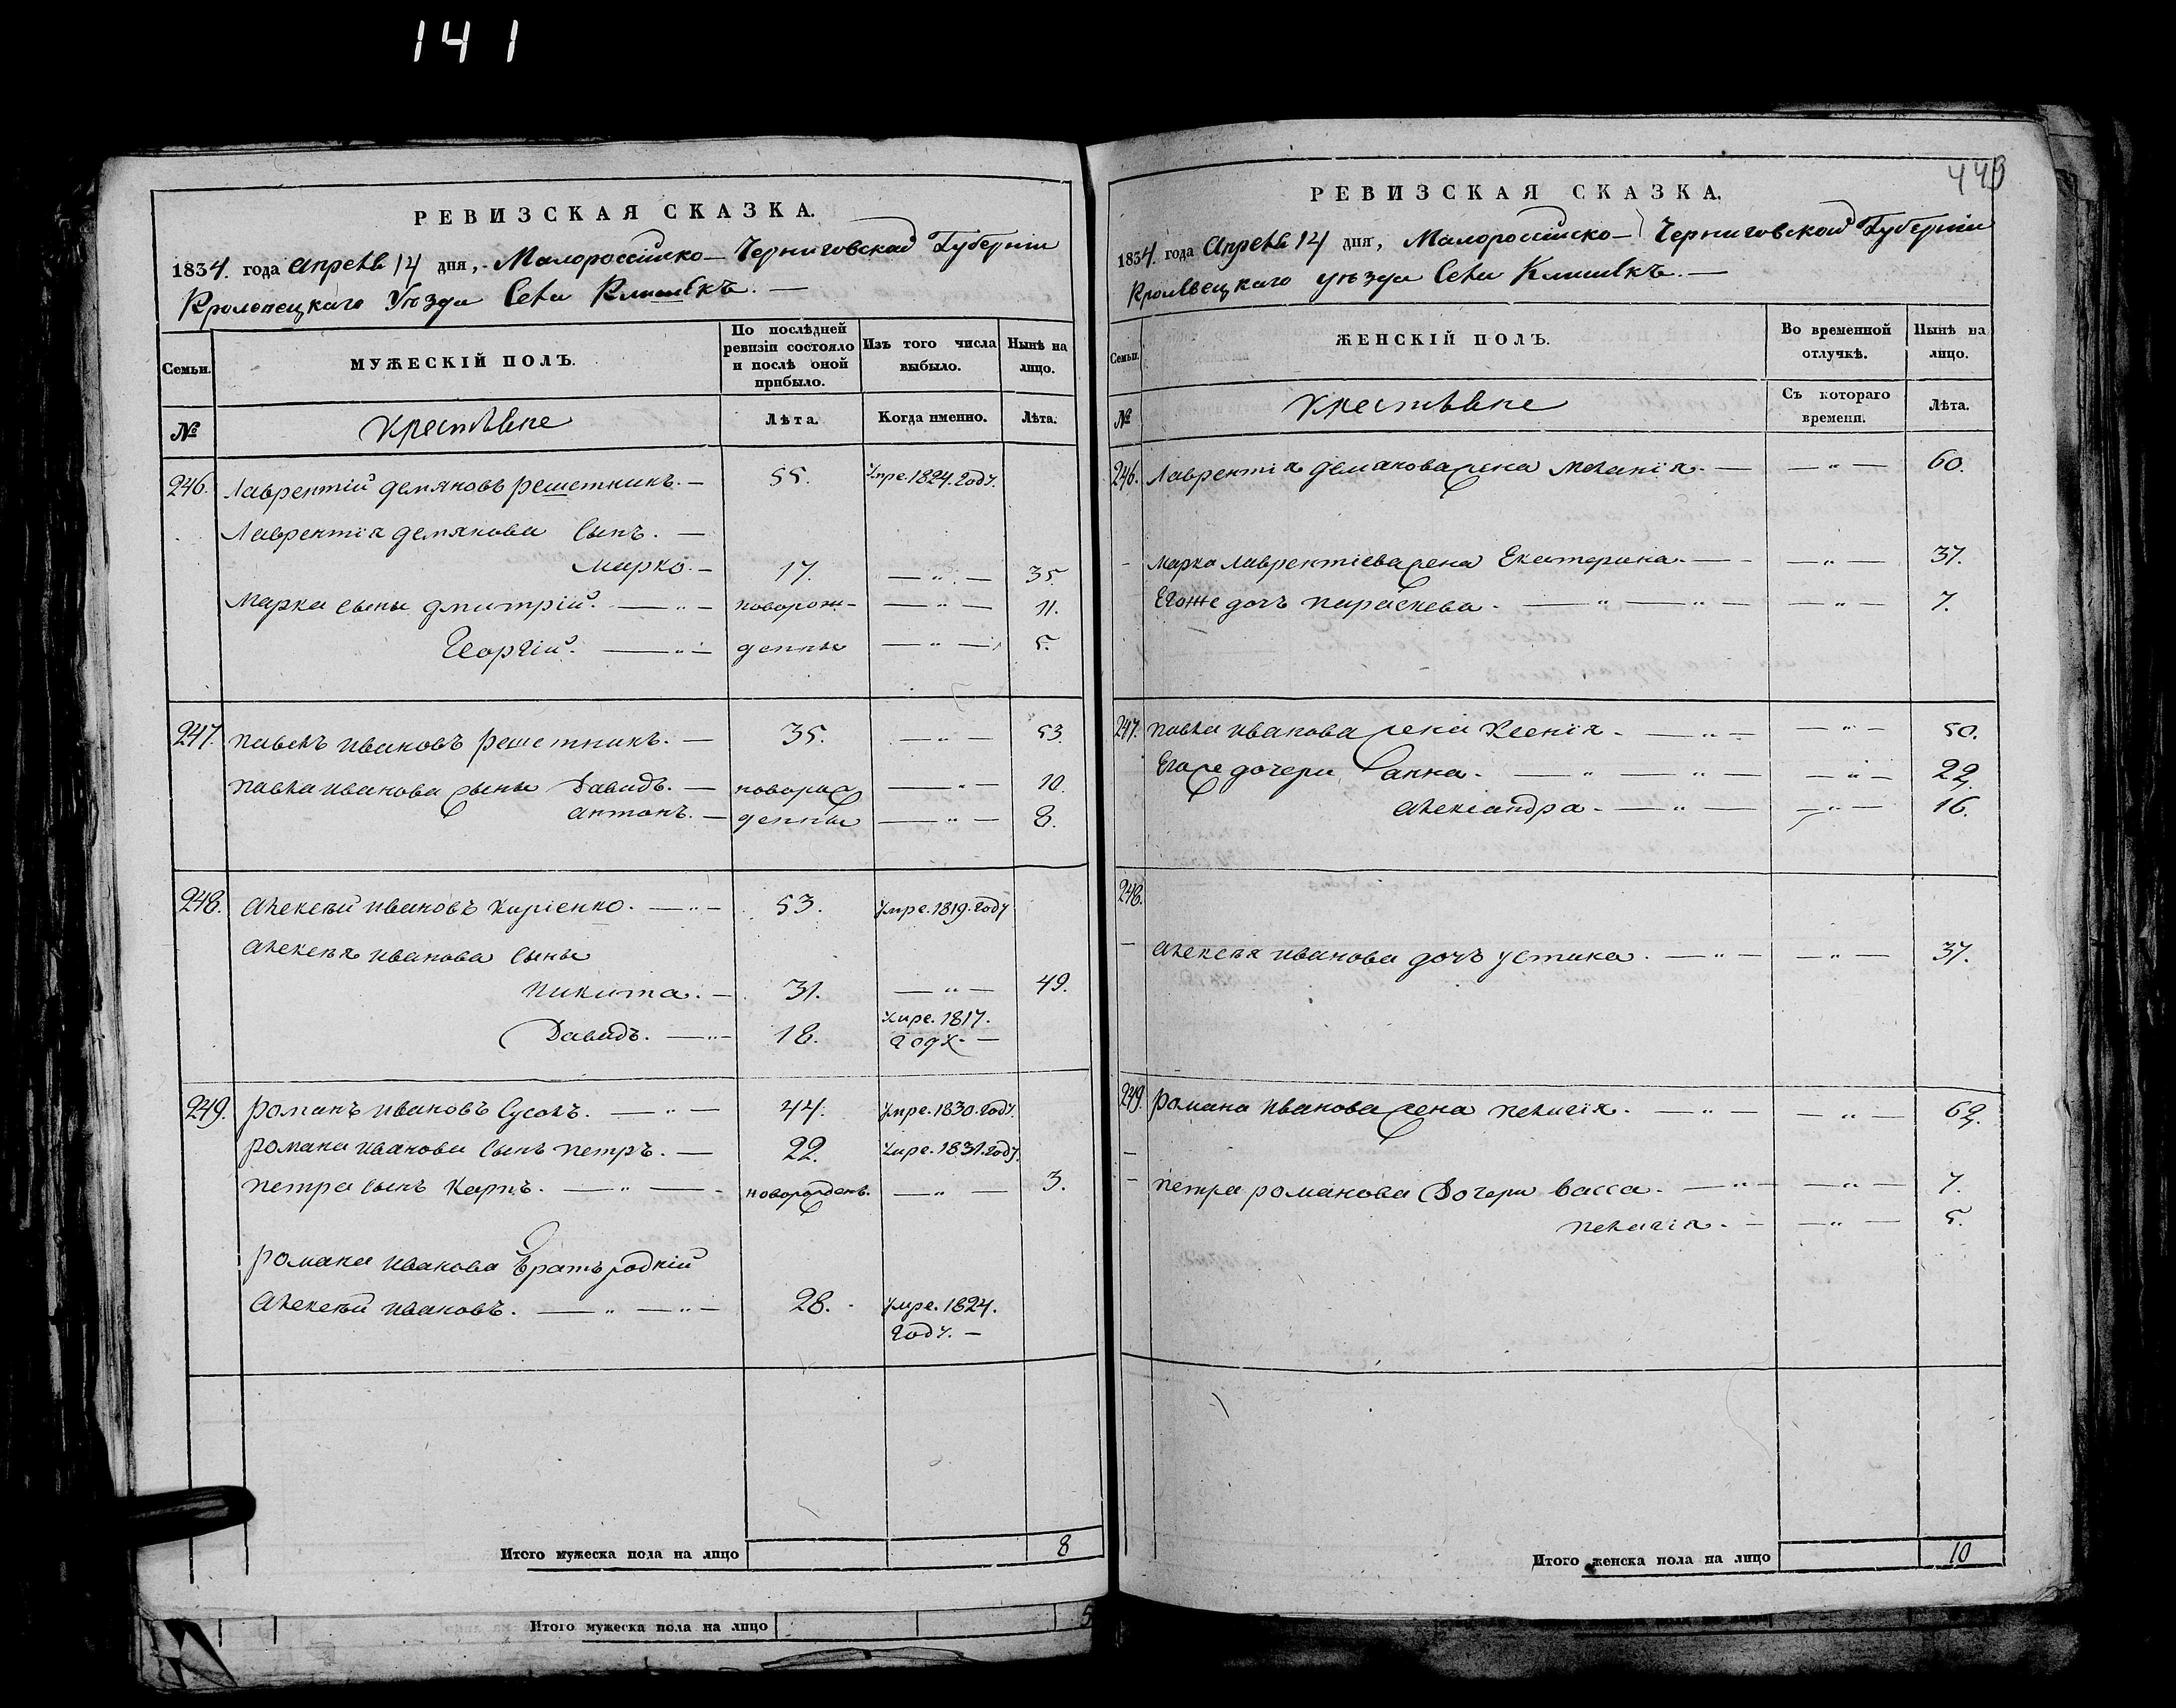 141
РЕВИЗСКАЯ СКАЗКА.
1834. года Апреля 14 дня, Малороссійско-Черниговской Губерніи
Кролевецкаго Уезда Села Клишекъ.
Семьи.
МУЖЕСКІЙ ПОЛЪ.
По послѣдней ревизіи состояло и послѣ оной прибыло.
Изъ того числа выбыло.
Нынѣ на лицо.
№
Крестьяне
Лѣта.
Когда именно.
Лѣта.
246. Лаврентій демяновъ решетникъ. — 55. умре. 1824. году.
Лаврентія демянова сынъ. —
Марко. — 17. — „ — 35.
Марка сыны дмитрій. — „ — новорож- — „ — 11.
Георгій. — „ — денные — „ — 5.
247. павелъ ивановъ решетникъ. — 35. — „ — 53.
павла иванова сыны Давидъ. — новорож — „ — 10.
антонъ. — денные — „ — 8.
248. алексѣй ивановъ Киріенко. — „ — 53. умре. 1819. году
алексѣя иванова сыны
никита. — 31. — „ — 49.
Давидъ. — „ — 18. умре. 1817.
году. —
249. романъ ивановъ Сусолъ. — „ — 44. умре. 1830. году.
романа иванова сынъ петръ. — 22. умре. 1831. году.
петра сынъ Карпъ. — „ — новорожденъ. — „ — 3.
романа иванова братъ родній
алексѣй ивановъ. — „ — „ — 28. умре. 1824.
году. —
Итого мужеска пола на лицо 8
Итого мужеска пола на лицо 5
РЕВИЗСКАЯ СКАЗКА.
1834. года Апреля 14 дня, Малороссійско-Черниговской Губерніи
Кролевецкаго уезда Села Клишекъ. —
Семьи.
ЖЕНСКІЙ ПОЛЪ.
Во временной отлучкѣ.
Нынѣ на лицо.
№
Крестьяне
Съ котораго времени.
Лѣта.
246. Лаврентія демянова жена Меланія. — — „ — 60.
Марка Лаврентіева жена Екатерина. — — „ — 37.
Егоже дочъ параскева. — „ — „ — — „ — 7.
247. павла иванова жена Ксенія. — „ — — „ — 50.
Егоже дочери анна. — „ — „ — — „ — 22.
александра. — „ — — „ — 16.
248.
алексѣя иванова дочъ устина. — „ — — „ — 37.
249. романа иванова жена пелагія. — „ — — „ — 62.
петра романова дочери васса. — „ — — „ — 7.
пелагія. — — „ — 5.
Итого женска пола на лицо 10